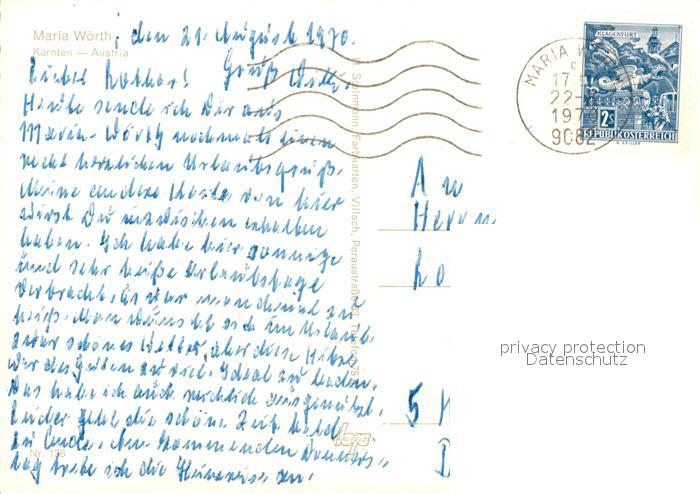 Maria Wörth, den 21. August 1970.
Kärnten — Austria
Lieber Lothar! Gruß Willi.
Heute sende ich Dir aus
Maria-Wörth nochmals einen
recht herzlichen Urlaubsgruß.
Meine andere Karte von hier
wirst Du inzwischen erhalten
haben. Ich habe hier sonnige
und sehr heiße Urlaubstage
verbracht. Es war manchmal zu
heiß. Man wünscht sich im Urlaub
zwar schönes Wetter, aber diese Hitze
war des Guten zu viel. Ideal zu baden.
Das habe ich auch reichlich ausgenützt.
Leider geht die schöne Zeit bald
zu Ende. Am kommenden Donners-
tag trete ich die Heimreise an.
Nr. 136
Farbkarten, Villach, Peraustraße
MARIA WÖRTH
17
22-8
1970
9082
KLAGENFURT
2 S
REPUBLIK ÖSTERREICH
An
Herrn
Lo
5
privacy protection
Datenschutz